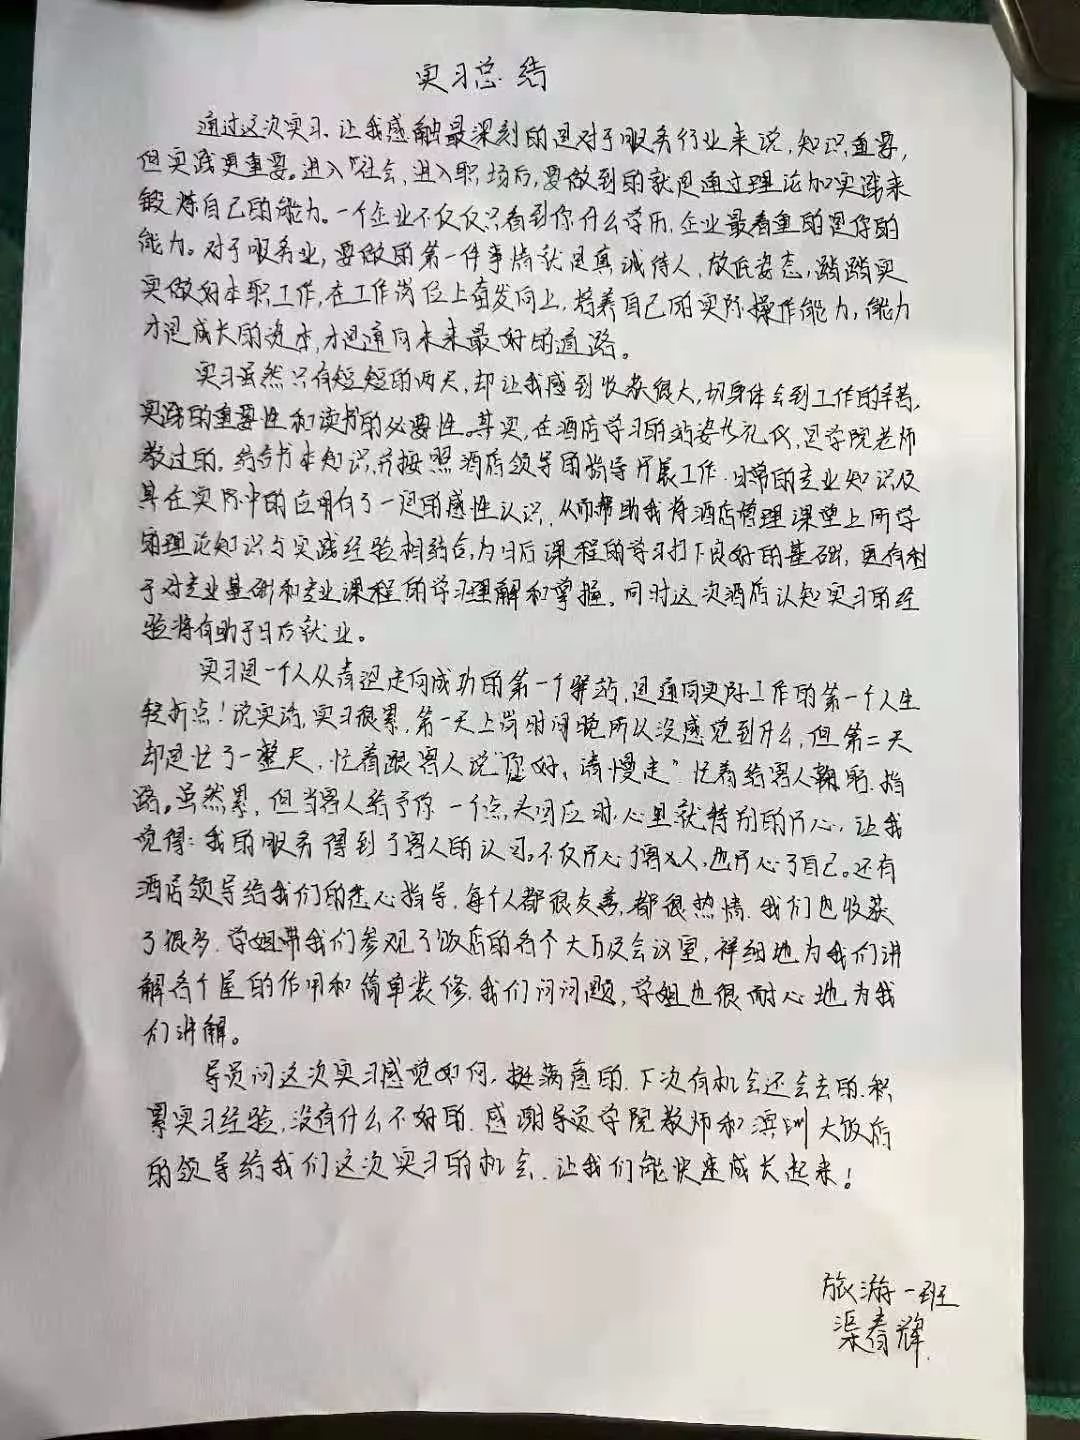 实习总结
通过这次实习、让我感触最深刻的是对于服务行业来说,知识重要,
但实践更重要。进入社会、进入职场后,要做到的就是通过理论加实践来
锻炼自己的能力。一个企业不仅仅只看到你什么学历,企业最看重的是你的
能力。对于服务业,要做的第一件事情就是真诚待人,放低姿态,踏踏实
实做好本职工作,在工作岗位上奋发向上,培养自己的实际操作能力,能力
才是成长的资本,才是通向未来最好的道路。
实习虽然只有短短的两天,却让我感到收获很大,切身体会到工作的辛苦,
实践的重要性和读书的必要性。其实,在酒店学习的站姿礼仪,是学院老师
教过的,结合书本知识,并按照酒店领导的指导开展工作,日常的专业知识及
其在实际中的应用有了一定的感性认识,从而帮助我将酒店管理课堂上所学
的理论知识与实践经验相结合,为日后课程的学习打下良好的基础,更有利
于对专业基础和专业课程的学习理解和掌握,同时这次酒店认知实习的经
验将有助于日后就业。
实习是一个人从青涩走向成功的第一个驿站,是通向实际工作的第一个人生
转折点!说实话,实习很累,第一天上岗时间晚所以没感觉到什么,但第二天
却是忙了一整天,忙着跟客人说"您好、请慢走"忙着给客人鞠躬、指
路。虽然累,但当客人给予你一个点头回应时,心里就特别的开心,让我
觉得:我的服务得到了客人的认可。不仅开心了客人,也开心了自己。还有
酒店领导给我们的悉心指导,每个人都很友善,都很热情,我们也收获
了很多,学姐带我们参观了饭店的各个大厅及会议室,祥细地为我们讲
解各个屋的作用和简单装修,我们问问题,学姐也很耐心地为我
们讲解。
导员问这次实习感觉如何,挺满意的,下次有机会还会去的,积
累实习经验,没有什么不好的,感谢导员学院教师和滨州大饭店
的领导给我们这次实习的机会,让我们能快速成长起来!
旅游一班
渠春辉